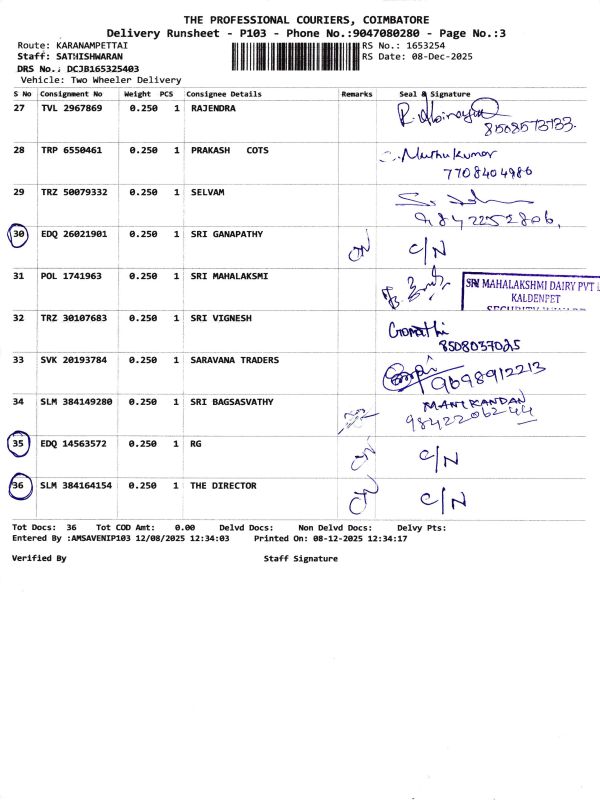 THE PROFESSIONAL COURIERS, COIMBATORE
Delivery Runsheet - P103 - Phone No.:9047080280 - Page No.:3
Route: KARANAMPETTAI RS No.: 1653254
Staff: SATHISHWARAN RS Date: 08-Dec-2025
DRS No.: DCJB165325403
Vehicle: Two Wheeler Delivery
S No Consignment No Weight PCS Consignee Details Remarks Seal & Signature
27 TVL 2967869 0.250 1 RAJENDRA
8508573733.
28 TRP 6550461 0.250 1 PRAKASH COTS Muthukumar
7708404986
29 TRZ 50079332 0.250 1 SELVAM
9842252806.
30 EDQ 26021901 0.250 1 SRI GANAPATHY CN C/N
31 POL 1741963 0.250 1 SRI MAHALAKSMI
SRI MAHALAKSHMI DAIRY PVT L
KALDENPET
32 TRZ 30107683 0.250 1 SRI VIGNESH Gomathi
8508037025
33 SVK 20193784 0.250 1 SARAVANA TRADERS 9698912213
34 SLM 384149280 0.250 1 SRI BAGSASVATHY MANIKANDAN
9842206244
35 EDQ 14563572 0.250 1 RG CN C/N
36 SLM 384164154 0.250 1 THE DIRECTOR CN C/N
Tot Docs: 36 Tot COD Amt: 0.00 Delvd Docs: Non Delvd Docs: Delvy Pts:
Entered By :AMSAVENIP103 12/08/2025 12:34:03 Printed On: 08-12-2025 12:34:17
Verified By Staff Signature